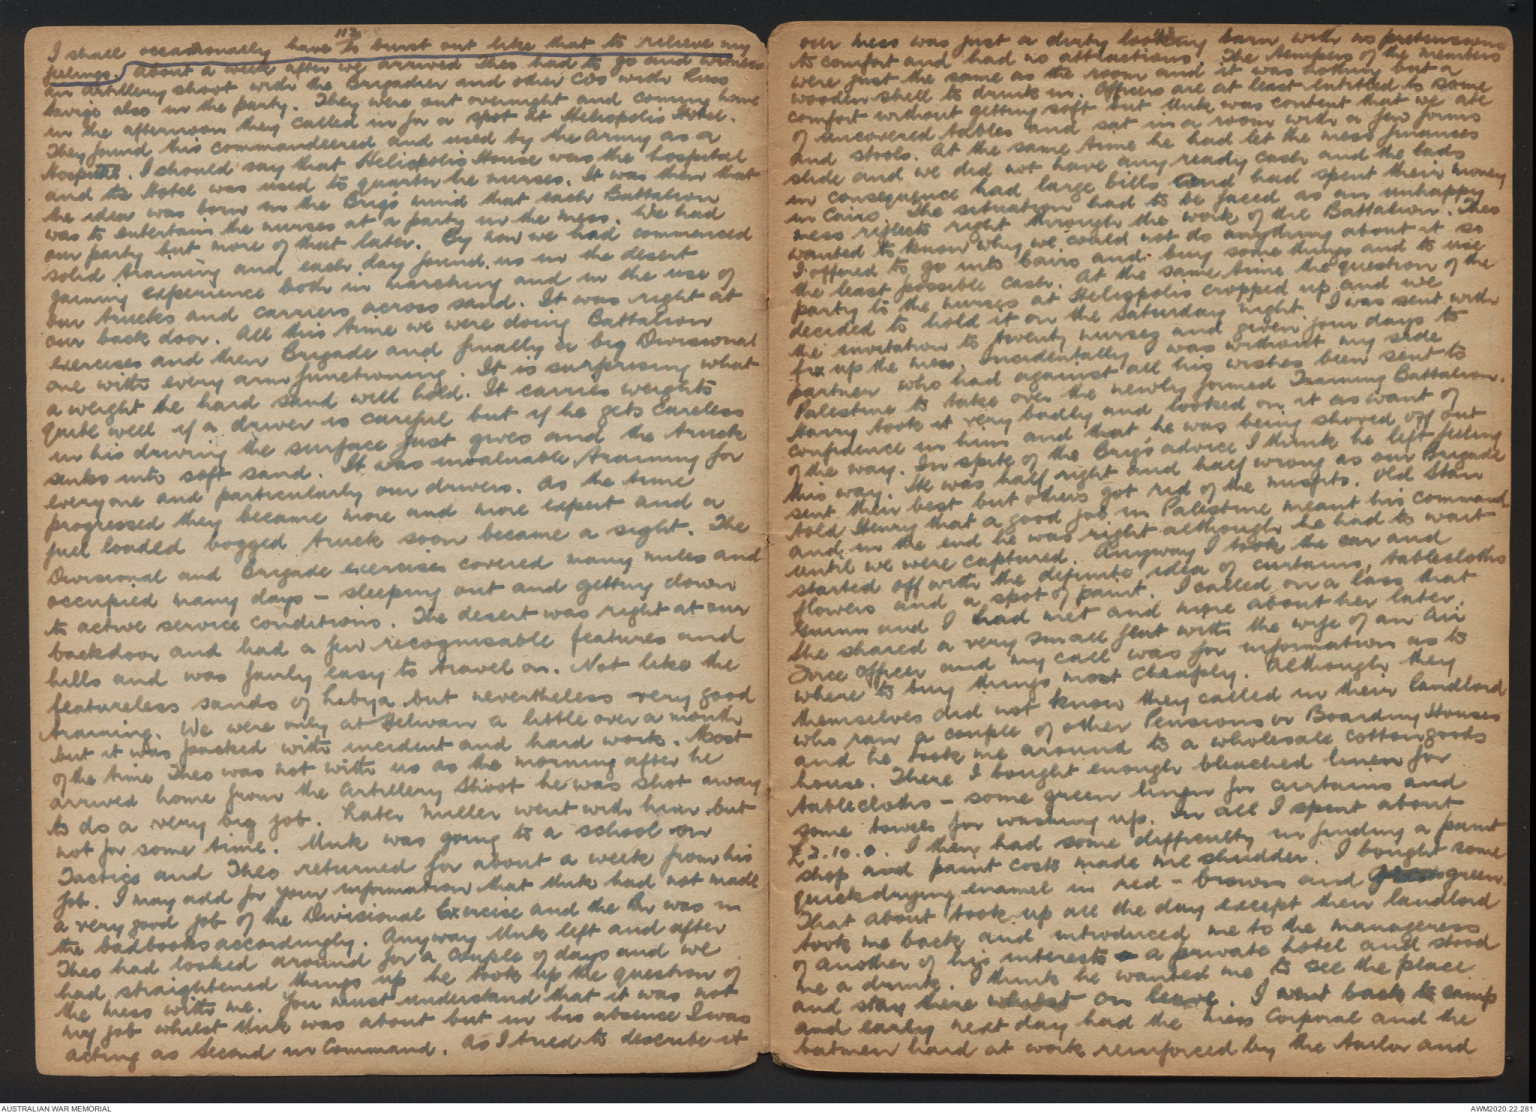 112
I shall occasionally have to burst out like that to relieve my
feelings. About a week after we arrived Theo had to go and witness
an artillery shoot with the Brigadier and other COs with Russ
Savige also in the party. They were out overnight and coming home
in the afternoon they called in for a spot at Heliopolis Hotel.
They found this commandeered and used by the Army as a
hospital. I should say that Heliopolis House was the hospital
and the Hotel was used to quarter the nurses. It was then that
the idea was born in the Brigs mind that each Battalion
was to entertain the nurses at a party in the mess. We had
our party but more of that later. By now we had commenced
solid training and each day found us in the desert
gaining experience both in marching and in the use of
our trucks and carriers across sand. It was right at
our back door. All this time we were doing Battalion
exercises and then Brigade and finally a big Divisional
one with every arm functioning. It is surprising what
a weight the hard sand will hold. It carries weights
quite well if a driver is careful but if he gets careless
in his driving the surface just gives and the truck
sinks into soft sand. It was invaluable training for
everyone and particularly our drivers. As the time
progressed they became more and more expert and a
full loaded bogged truck soon became a sight. The
Divisional and Brigade exercises covered many miles and
occupied many days - sleeping out and getting down
to active service conditions. The desert was right at our
backdoor and had a few recognisable features and
hills and was fairly easy to travel on. Not like the
featureless sands of Libya but nevertheless very good
training. We were only at Helwan a little over a month
but it was packed with incident and hard work. Most
of the time Theo was not with us as the morning after he
arrived home from the Artillery Shoot he was shot away
to do a very big job. Later Miller went with him but
not for some time. Unk was going to a school on
Tactics and Theo returned for about a week from his
job. I may add for your information that Unk had not made
a very good job of the Divisional Exercise and the Bn was in
the badbooks accordingly. Anyway Unk left and after
Theo had looked around for a couple of days and we
had straightened things up he took up the question of
the mess with me. You must understand that it was not
my job whilst Unk was about but in his absence I was
acting as Second in Command. As I tried to describe it
our mess was just a dirty looking barn with no pretensions
to comfort and had no attractions. The tempers of the members
were just the same as the room and it was nothing but a
wooden shell to drink in. Officers are at least entitled to some
comfort without getting soft but Unk was content that we ate
of uncovered tables and sat in a room with a few forms
and stools. At the same time he had let the mess finances
slide and we did not have any ready cash and the lads
in consequence had large bills and had spent their money
in Cairo. The situation had to be faced as an unhappy
mess reflects right through the work of the Battalion. Theo
wanted to know why we could not do anything about it so
I offered to go into Cairo and buy some things and to use
the least possible cash. At the same time the question of the
party to the nurses at Heliopolis cropped up and we
decided to hold it on the Saturday night. I was sent with
the invitation to twenty nurses and given four days to
fix up the mess. Incidentally I was without my side
partner who had against all his wishes been sent to
Palestine to take over the newly formed Training Battalion.
Harry took it very badly and looked on it as want of
confidence in him and that he was being shoved off out
of the way. In spite of the Brig's advice I think he left feeling
this way. He was half right and half wrong as our Brigade
sent their best but others got rid of the misfits. Old Stan
told Henry that a good job in Palestine meant his command
and in the end he was right although he had to wait
until we were captured. Anyway I took the car and
started off with the definite idea of curtains, tablecloths
flowers and a spot of paint. I called on a lass that
Gunn and I had met and more about her later.
She shared a very small flat with the wife of an Air
Force officer and my call was for information as to
where to buy things most cheaply. Although they
themselves did not know they called in their landlord
who ran a couple of other Pensions or Boarding Houses
and he took me around to a wholesale cottongoods
house. There I bought enough bleached linen for
tablecloths - some green linen for curtains and
some towels for washing up. In all I spent about
£2.10.0. I then had some difficulty in finding a paint
shop and paint costs made me shudder. I bought some
quickdrying enamel in red - brown and green.
That about took up all the day except their landlord
took me back and introduced me to the manageress
of another of his interests a private hotel and stood
me a drink. I think he wanted me to see the place
and stay there whilst on leave. I went back to camp
and early next day had the mess Corporal and the
batmen hard at work reinforced by the tailor and
AUSTRALIAN WAR MEMORIAL
AWM2020.22.281